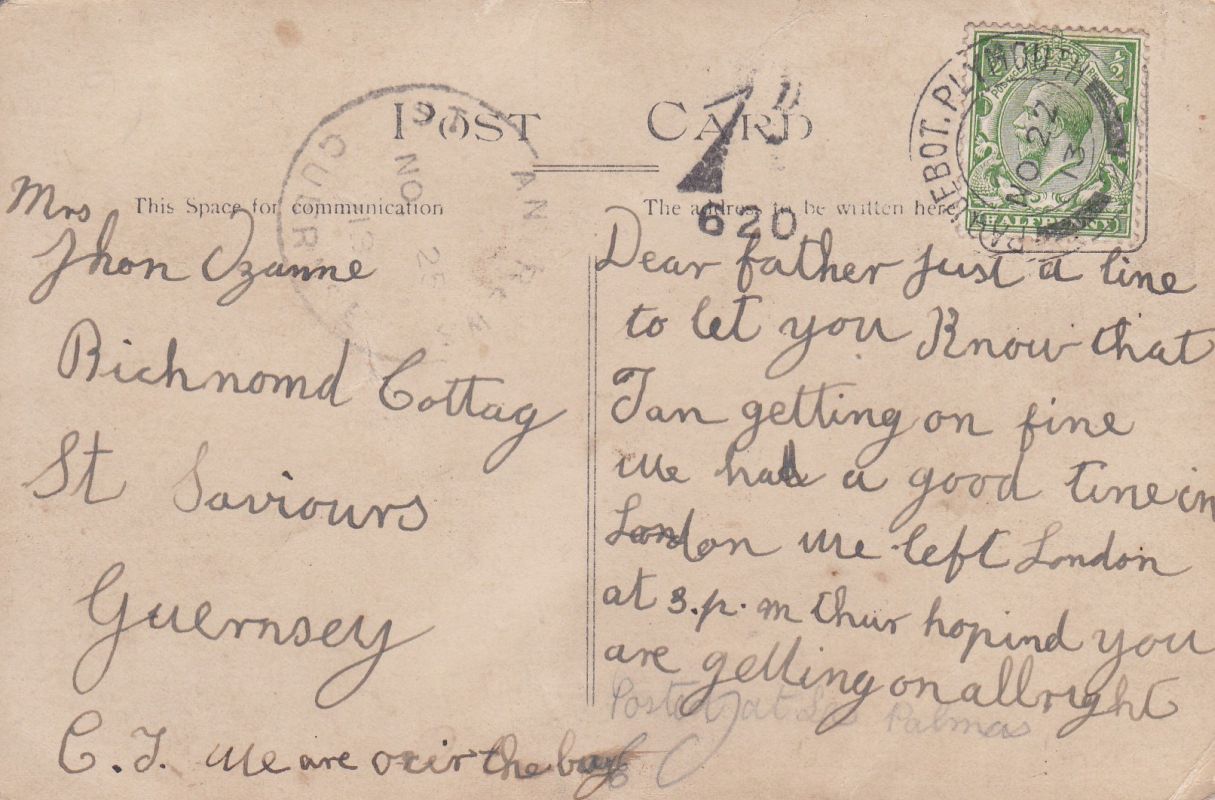 POST CARD
This Space for communication
The address to be written here
1D
620
PAQUEBOT. PLYMOUTH
NO 22
13
HALFPENNY
ST ANDREWS
GUERNSEY
NO 25
Mrs
Jhon Ozanne
Richnomd Cottag
St Saviours
Guernsey
C. I. We are ovir the bay
Dear father just a line
to let you Know that
I an getting on fine
we had a good tine in
London we left London
at 3.p.m thur hopind you
are getting on allright
Posted at Las Palmas